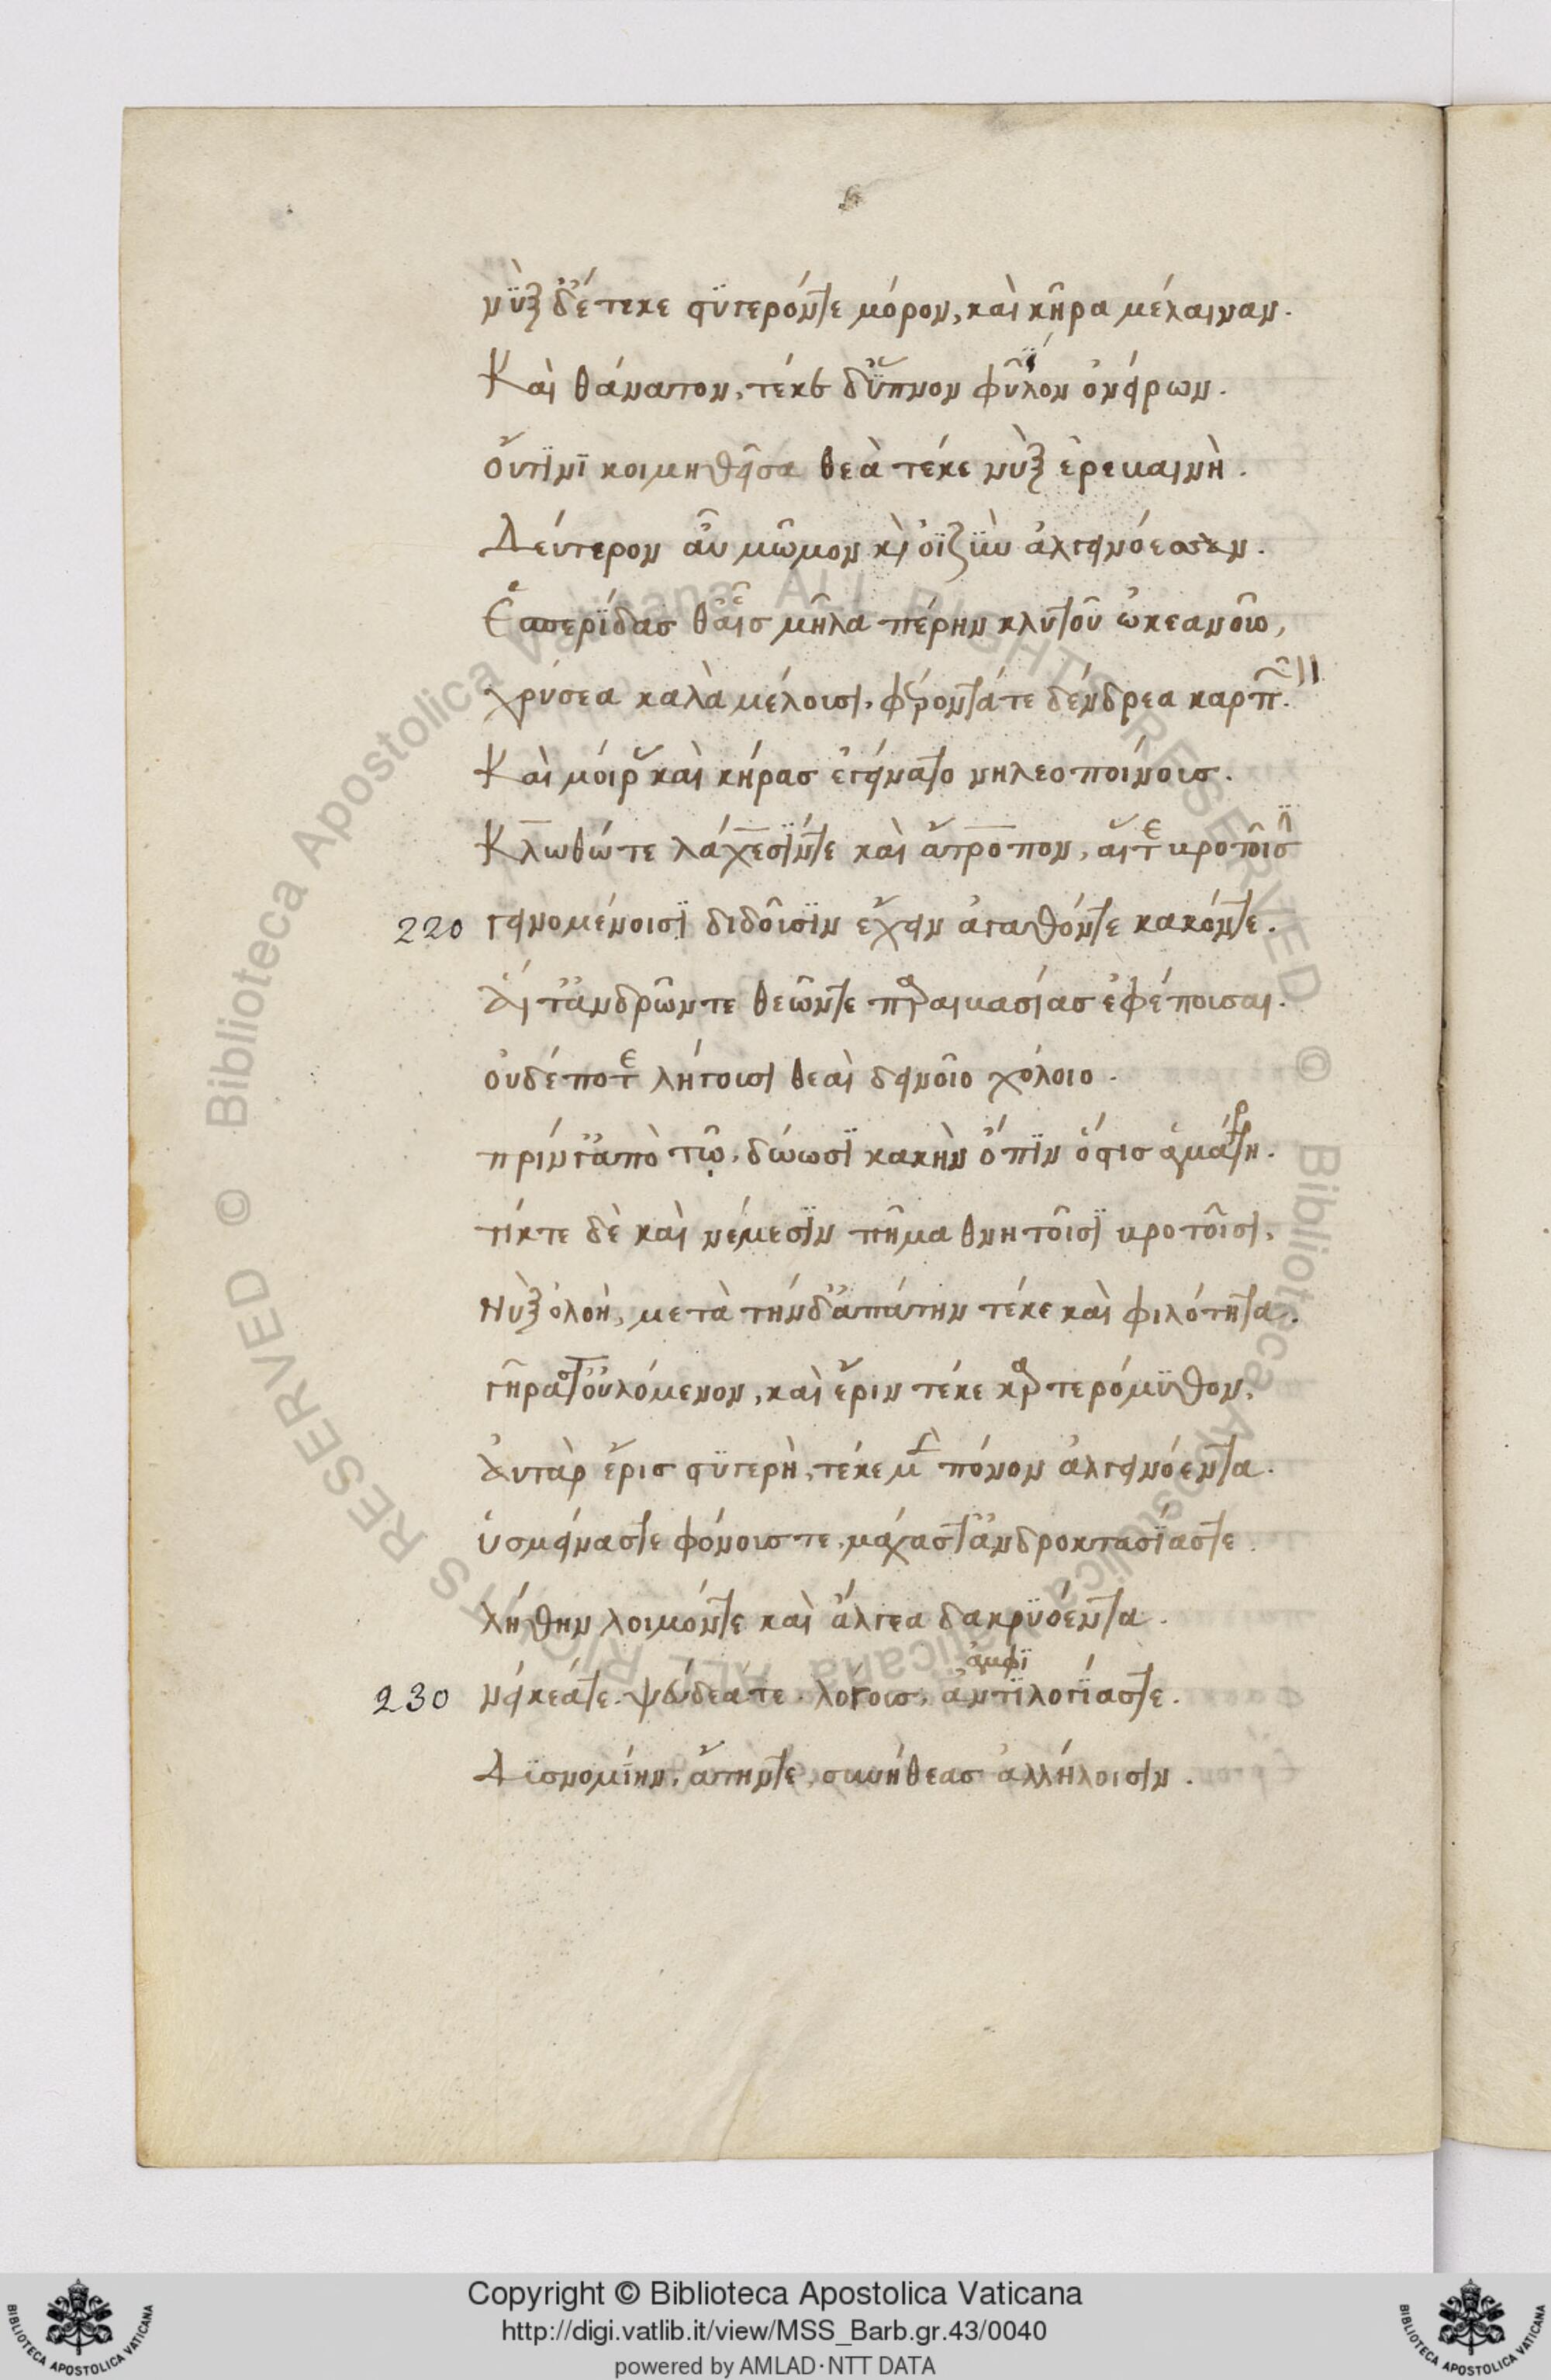 νὺξ δ' ἔτεκε στυγερόν τε μόρον, καὶ κῆρα μέλαιναν.
Καὶ θάνατον, τέκεν δ' ὕπνον φῦλον ὀνείρων.
οὔτινι κοιμηθεῖσα θεὰ τέκε νὺξ ἐρεβαινὴ.
Δεύτερον αὖ μῶμον καὶ ὀϊζὺν ἀλγεινόεσσαν.
Ἑσπερίδας θ' αἷς μῆλα πέρην κλυτοῦ ὠκεανοῖο,
χρύσεα καλὰ μέλουσι, φέροντά τε δένδρεα καρπὸν.
Καὶ μοίρας καὶ κήρας ἐγείνατο νηλεοποίνους.
Κλωθώ τε λάχεσίν τε καὶ ἄτροπον, αἵτε βροτοῖσι
220 γεινομένοισι διδοῦσιν ἔχειν ἀγαθόν τε κακόν τε.
Αἵ τ' ἀνδρῶν τε θεῶν τε παραιβασίας ἐφέπουσαι.
οὐδέποτε λήγουσι θεαὶ δεινοῖο χόλοιο.
πρίν γ' ἀπὸ τῷ, δώωσι κακὴν ὄπιν ὅστις ἁμάρτη.
τίκτε δὲ καὶ νέμεσιν πῆμα θνητοῖσι βροτοῖσι,
Νὺξ ὀλοὴ, μετὰ τήν δ' ἀπάτην τέκε καὶ φιλότητα.
γῆράς τ' οὐλόμενον, καὶ ἔριν τέκε καρτερόμυθον,
Αὐτὰρ ἔρις στυγερὴ, τέκε μὲν πόνον ἀλγεινόεντα.
ὑσμείνας τε φόνους τε, μάχας τ' ἀνδροκτασίας τε
λήθην λοιμόν τε καὶ ἄλγεα δακρυόεντα.
ἀμφι
230 νείκεά τε, ψεύδεά τε, λόγους, ἀντιλογίας τε.
Δυσνομίην, ἄτην τε, συνήθεας ἀλλήλοισιν.
Copyright © Biblioteca Apostolica Vaticana
http://digi.vatlib.it/view/MSS_Barb.gr.43/0040
powered by AMLAD·NTT DATA